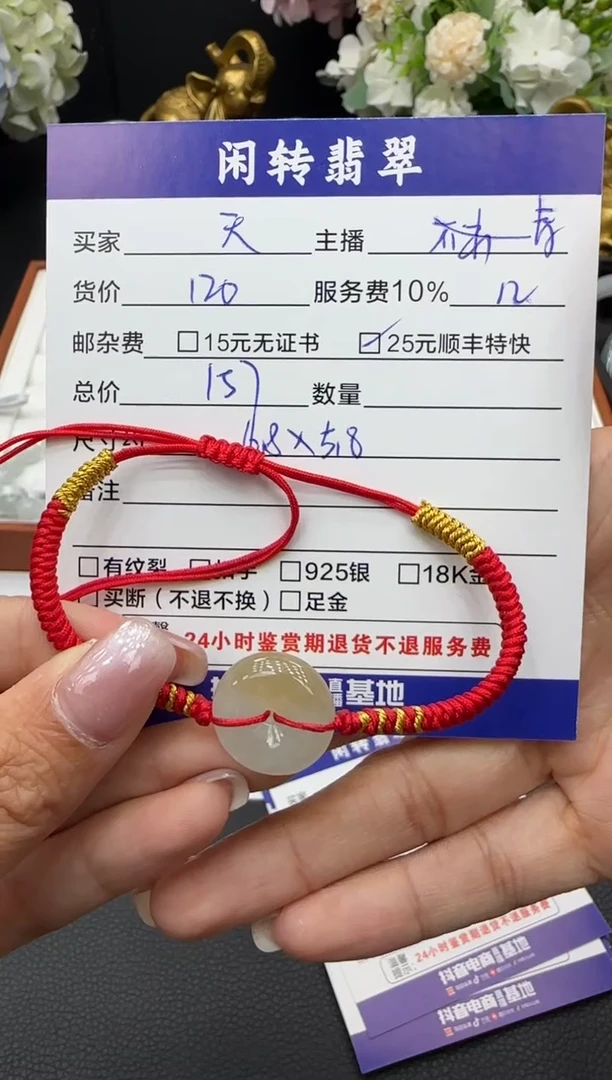 闲转翡翠
买家 天 主播
货价 120 服务费10% 12
邮杂费 □15元无证书 ☑25元顺丰特快
总价 157 数量
尺寸 16.8×5.8
备注
□有纹裂 □扣子 □925银 □18K金
□买断（不退不换）□足金
24小时鉴赏期退货不退服务费
基地
闲转翡翠
买家
温馨提示：24小时鉴赏期退货不退服务费
抖音电商直播基地
抖音电商直播基地